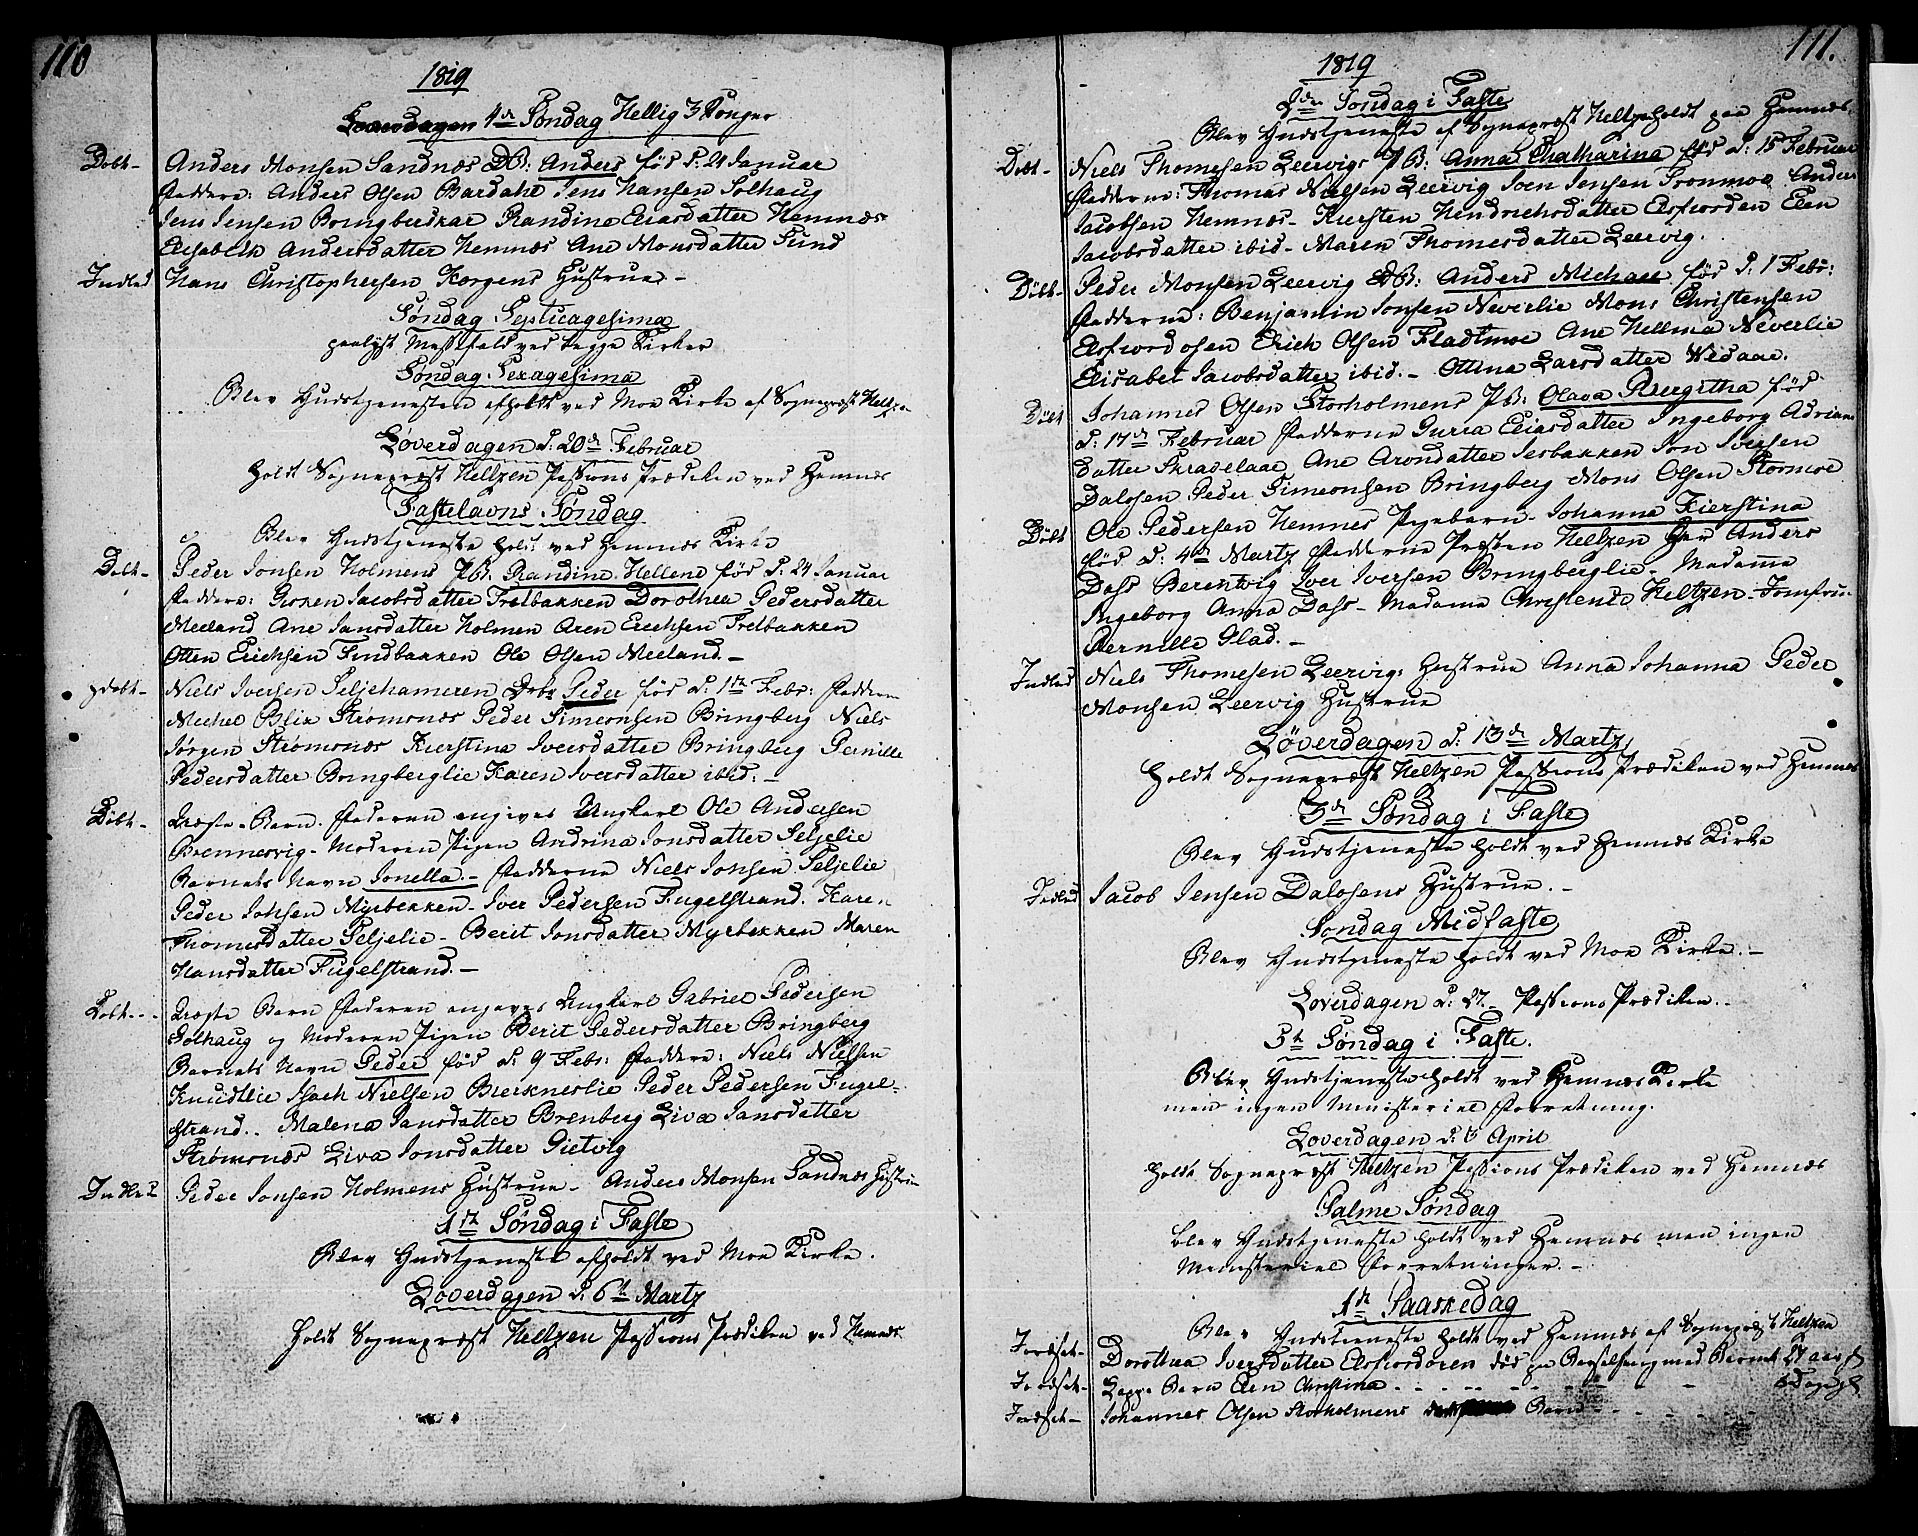 110
1819
4de Søndag Hellig 3 Konger
Døbt - Anders Monsen Sandnæs DB: Anders fød d: 24 Januar
Faddere: Anders Olsen Bardahl Jens Hansen Solhaug
Jens Jensen Bringbershar Randine Eliasdatter Hemnæs
Elisabeth Andersdatter Hemnæs Ane Monsdatter Sund
Indled Hans Christophersen Korgens Hustrue -
Søndag Septuagesima
Messefald ved begge Kirker
Søndag Sexagesima
Blev Gudstjenesten afholdt ved Moe Kirke af Sognepræst Heltzen
Løverdagen d: 20de Februar
Holdt Sognepræst Heltzen Passions Prædiken ved Hemnæs
Fastelavns Søndag
Blev Gudstjeneste holdt ved Hemnæs Kirke
Døbt - Peder Jonsen Holmens PB: Randine Hellene fød d: 24 Januar
Faddere: Jacobsdatter Trelbakken Dorothea Pedersdatter
Meeland Ane Jansdatter Holmen Aren Erichsen Trelbakken
Otten Erichsen Findbakken Ole Olsen Meeland. -
Døbt - Niels Iversen Seljehameren Peder fød d: 1te Febr: Faddere
Michel Blix Strømsnæs Peder Simeonsen Bringberg Niels
Jørgen Strømsnæs Kierstina Iversdatter Bringberg Pernille
Pedersdatter Bringberglie Karen Iversdatter ibid: -
Døbt - Uægte Barn. Faderen angives Ungkarl Ole Andersen
Brennesvig - Moderen Pigen Andrina Jonsdatter Seljelie
Barnets Navn Jonella. - Fadderne Niels Jonsen Seljelie
Peder Jonsen Myrbekken - Iver Pedersen Fugelstrand. Karen
Thomesdatter Seljelie - Berit Jonsdatter Myrbekken Maren
Hansdatter Fugelstrand. -
Døbt - Uægte Barn Faderen angives Ungkarl Gabriel Pedersen
Solhaug og Moderen Pigen Berit Pedersdatter Bringberg
Barnets Navn Peder fød d: 9 Febr: Faddere: Niels Nielsen
Knudtlie Isach Nielsen Bierkneslie Peder Pedersen Fugel-
strand. Malena Jansdatter Brenberg Liva Jansdatter
Strømsnæs Liva Jonsdatter Gietvig
Indled Peder Jonsen Holmens Hustrue - Anders Monsen Sandnæs Hustrue
1te Søndag i Faste
Blev Gudstjeneste afholdt ved Moe Kirke.
Løverdagen d: 6te Martz
Holdt Sognepræst Heltzen Passions Prædiken ved Hemnæs
111.
1819
2den Søndag i Faste
Blev Gudstjeneste af Sognepræst Heltzen holdt paa Hemnæs
Døbt - Niels Thomesen Leervigs PB: Anna Chatharina fød d: 15 Februar
Fadderne: Thomas Nielsen Leervig Soen Jensen Tronmoe Anders
Jacobsen Hemnæs - Kiersten Hendrichsdatter Elsfiorden Elen
Jacobsdatter ibid - Maren Thomesdatter Leervig.
Døbt - Peder Monsen Leervig DB: Anders Michael fød d. 1 Febr:
Fadderne: Benjamin Jonsen Neverlie Mons Christensen
Elsfiordosen Erich Olsen Fladtmoe Ane Hellma Neverlie
Elisabet Jacobsdatter ibid. - Ottina Larsdatter Wedaae.
Døbt Johannes Olsen Storholmens PB: Olava Bergitha fød
d: 17de Februar Fadderne Guria Eliasdatter Ingeborg Adriane
datter Skravelaae Ane Arondatter Lerbakken Jon Iversen
Dalosen Peder Simeonsen Bringberg Mons Olsen Stormoe
Døbt Ole Pedersen Hemnes Pigebarn - Johanna Kierstina
fød d: 4de Martz Fadderne Præsten Heltzen Hr Anders
Dass Berentvig Iver Iversen Bringberglie - Madame
Ingeborg Anna Dass - Madame Christence Heltzen - Jomfrue
Pernille Glad. -
Indled Niels Thomesen Leervigs Hustrue Anna Johanna Peder
Monsen Leervig Hustrue
Løverdagen d: 13de Martz
Holdt Sognepræst Heltzen Passions Prædiken ved Hemnes
3de Søndag i Faste
Blev Gudstjeneste holdt ved Hemnæs Kirke
Indled Jacob Jensen Dalosens Hustrue. -
Søndag Midfaste
Blev Gudstjeneste holdt ved Moe Kirke. -
Løverdagen d: 27. - Passions Prædiken. -
5te Søndag i Faste.
Blev Gudstjeneste holdt ved Hemnæs Kirke
men ingen Ministeriel Forretning.
Løverdagen d. 3 April
Holdt Sognepræst Heltzen Passions Prædiken ved Hemnæs
Palme Søndag
blev Gudstjeneste holdt ved Hemnæs men ingen
Ministeriel Forretninger. -
1te Paaskedag
Blev Gudstieneste holdt ved Hemnæs af Sognepræst Heltzen
Jordfæst - Dorothea Iversdatter Elsfiordosen død paa Barselseng med Barnet 27 aar gl
Jordfæst - Barn Elen Christina - - - - 6 Dage gl
Jordfæst - Johannes Olsen Storholmens Barn - - - -